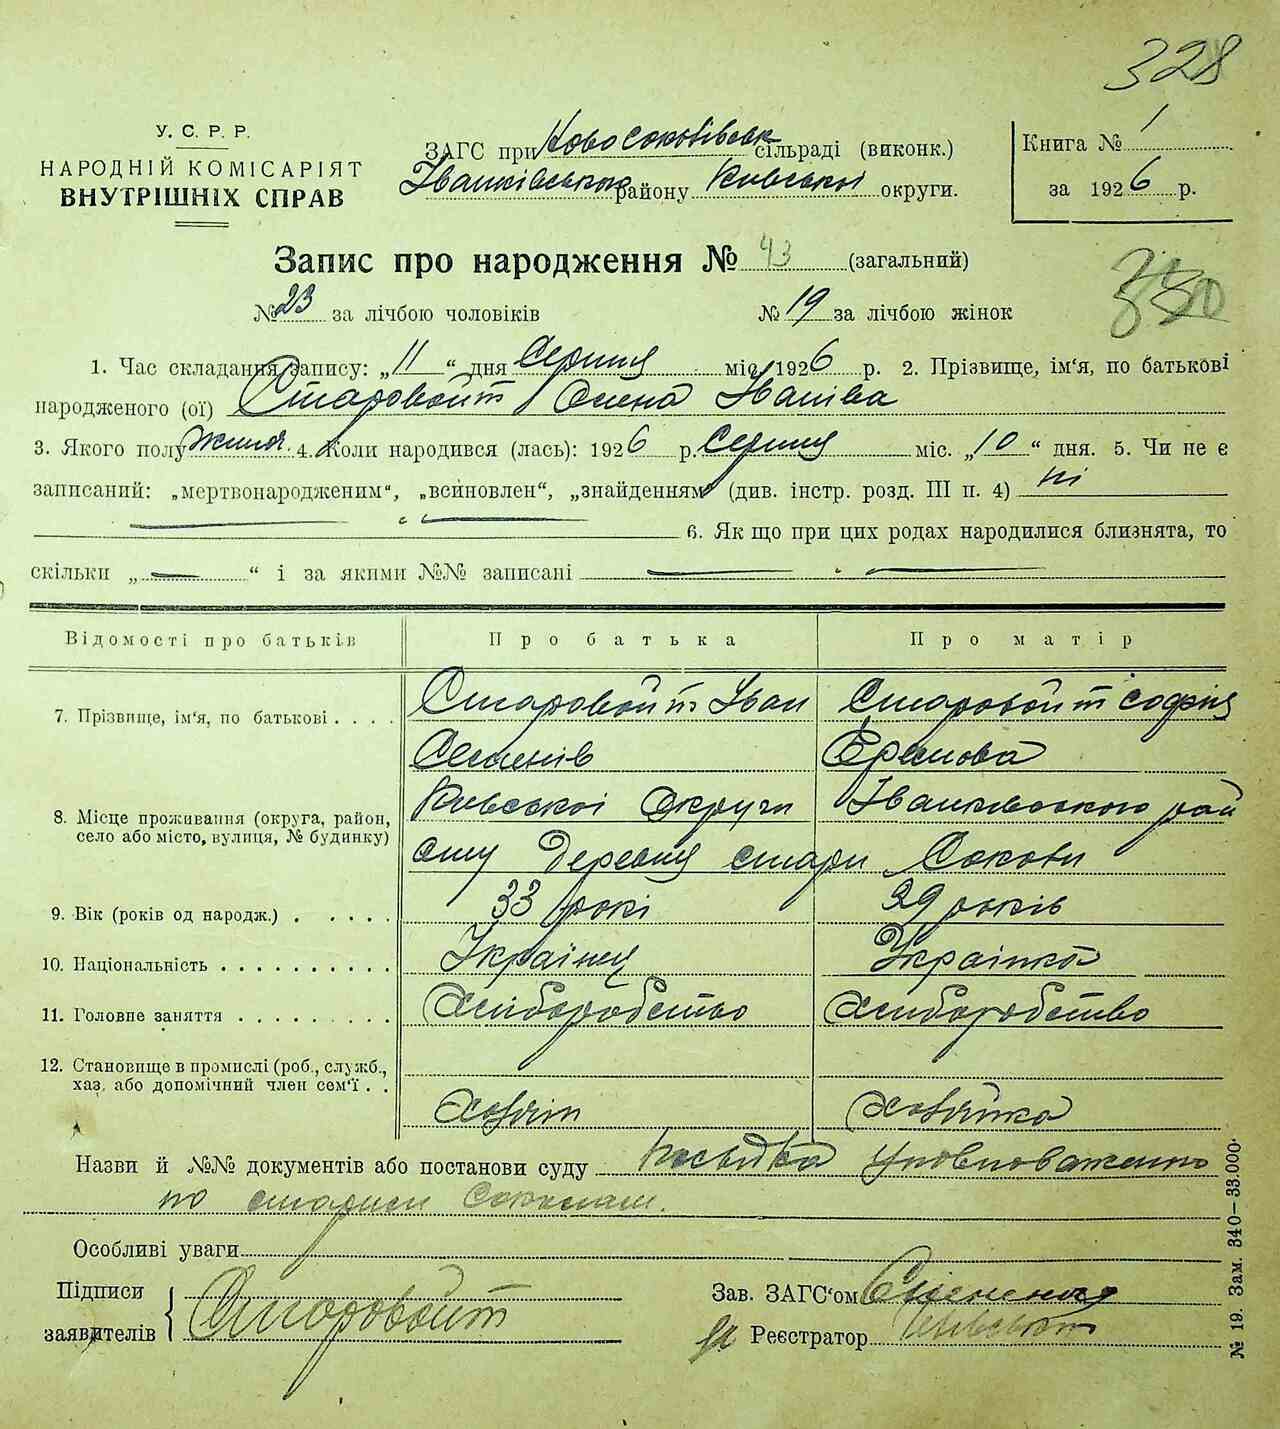 328
У. С. Р. Р.
НАРОДНІЙ КОМІСАРІЯТ
ВНУТРІШНІХ СПРАВ
ЗАГС при Ново соколівськ сільраді (виконк.)
Іванківського району Київської округи.
Книга № 1
за 1926 р.
Запис про народження № 43 (загальний)
№ 23 за лічбою чоловіків № 19 за лічбою жінок
1. Час складання запису: „11“ дня Серпня міс. 1926 р. 2. Прізвище, ім‘я, по батькові
народженого (ої) Старовойт Олена Іванівна
3. Якого полу жіноч. 4. Коли народився (лась): 1926 р. Серпня міс. „10“ дня. 5. Чи не є
записаний: „мертвонародженим“, „всиновлен“, „знайденням“ (див. інстр. розд. III п. 4) ні
6. Як що при цих родах народилися близнята, то
скільки „—“ і за якими №№ записані —
Відомості про батьків Про батька Про матір
7. Прізвище, ім‘я, по батькові . . . . Старовойт Іван Старовойт Софія
Семенів Єремова
8. Місце проживання (округа, район, село або місто, вулиця, № будинку) Київської Округи Іванківського рай
ону Деревня стари Соколи
9. Вік (років од народж.) . . . . . 33 рокі 29 років
10. Національність . . . . . . . . . . Українец Українка
11. Головне заняття . . . . . . . . . Хліборобство Хліборобство
12. Становище в промислі (роб., служб.,
хаз. або допомічний член сем‘ї . . Хозяін Хозяйка
Назви й №№ документів або постанови суду Посвідка Уповноваженого
по старим Соколам.
Особливі уваги
Підписи
заявителів Старовойт
Зав. ЗАГС‘ом
Реєстратор
№ 19. Зам. 340—33.000.